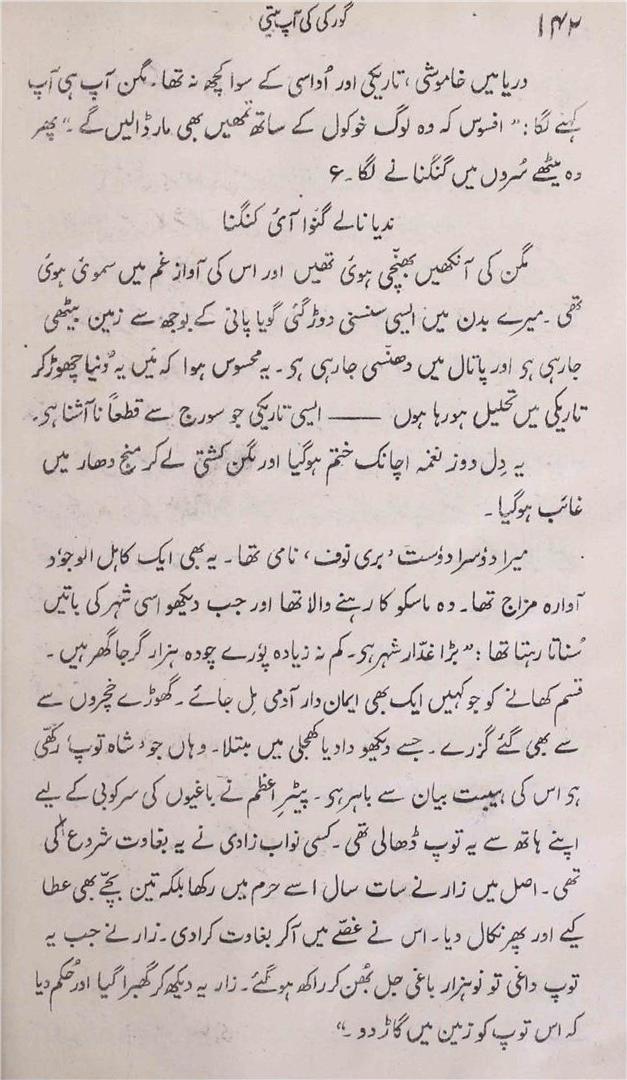 ۱۴۲
گورکی کی آپ بیتی
دریا میں خاموشی، تاریکی اور اُداسی کے سوا کچھ نہ تھا۔ مگن آپ ہی آپ
کہنے لگا: ” افسوس کہ وہ لوگ خوکول کے ساتھ تمھیں بھی مار ڈالیں گے ۔“ پھر
وہ میٹھے سُروں میں گنگنانے لگا۔ ۶
ندیا نالے گئوا آئ کنگنا
مگن کی آنکھیں بھنّچی ہوئ تھیں اور اس کی آواز غم میں سموئ ہوئ
تھی ۔ میرے بدن میں ایسی سنسنی دوڑ گئی گویا پانی کے بوجھ سے زمین بیٹھی
جارہی ہو اور پاتال میں دھنسی جارہی ہو ۔ یہ محسوس ہوا کہ مَیں یہ دُنیا چھوڑ کر
تاریکی میں تحلیل ہورہا ہوں ـــــــ ایسی تاریکی جو سورج سے قطعاً ناآشنا ہو۔
یہ دِل دوز نغمہ اچانک ختم ہوگیا اور مگن کشتی لے کر منجدھار میں
غائب ہوگیا ۔
میرا دوٗسرا دوٗست ’بری نوف، نامی تھا ۔ یہ بھی ایک کاہل الوجوٗد
آوارہ مزاج تھا۔ وہ ماسکو کا رہنے والا تھا اور جب دیکھو اسی شہر کی باتیں
سُناتا رہتا تھا : ”بڑا غدّار شہر ہو۔ کم نہ زیادہ پوٗرے چودہ ہزار گرجا گھر ہیں ۔
قسم کھانے کو جو کہیں ایک بھی ایمان دار آدمی مِل جائے ۔ گھوڑے خچّروں سے
سے بھی گئے گزرے ۔ جسے دیکھو داد یا کھجلی میں مبتلا۔ وہاں جو ’شاہ توپ‘ رکھّی
ہو اس کی ہیبت بیان سے باہر ہو ۔ پیٹرِ اعظم نے باغیوں کی سرکوبی کے لیے
اپنے ہاتھ سے یہ توپ ڈھالی تھی ۔ کسی نواب زادی نے یہ بغاوت شروع کی
تھی ۔ اصل میں زار نے سات سال اسے حرم میں رکھا بلکہ تین بچّے بھی عطا
کیے اور پھر نکال دیا۔ اس نے غصّے میں آکر بغاوت کرادی ۔ زار نے جب یہ
توپ داغی تو نو ہزار باغی جل بھُن کر راکھ ہوگئے ۔ زار یہ دیکھ کر گھبرا گیا اور حُکم دیا
کہ اس توپ کو زمین میں گاڑ دو ۔“